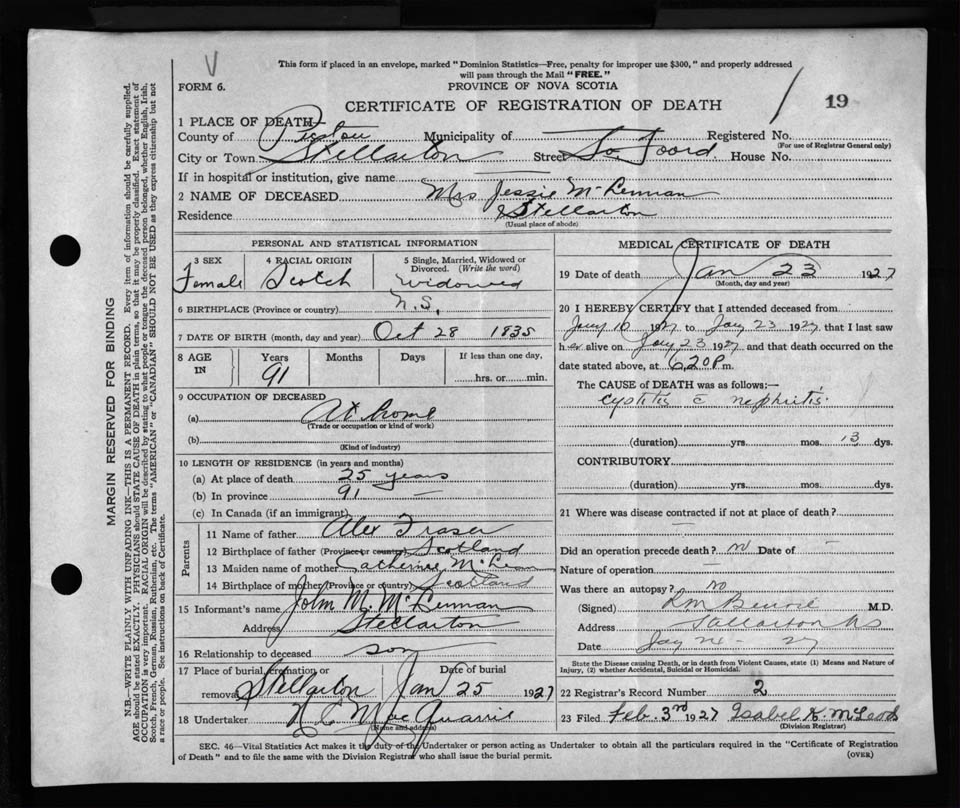 V
This form if placed in an envelope, marked "Dominion Statistics—Free, penalty for improper use $300," and properly addressed
will pass through the Mail "FREE."
FORM 6.
PROVINCE OF NOVA SCOTIA
CERTIFICATE OF REGISTRATION OF DEATH
19
1 PLACE OF DEATH
County of Pictou Municipality of Registered No.
(For use of Registrar General only)
City or Town Stellarton Street So. Foord. House No.
If in hospital or institution, give name
2 NAME OF DECEASED Mrs Jessie McLennan
Residence Stellarton
(Usual place of abode)
PERSONAL AND STATISTICAL INFORMATION
3 SEX 4 RACIAL ORIGIN 5 Single, Married, Widowed or
Divorced. (Write the word)
Female Scotch Widowed
6 BIRTHPLACE (Province or country) N.S.
7 DATE OF BIRTH (month, day and year) Oct 28 1835
8 AGE IN Years Months Days If less than one day,
91 hrs. or min.
9 OCCUPATION OF DECEASED
(a) At home
(Trade or occupation or kind of work)
(b)
(Kind of industry)
10 LENGTH OF RESIDENCE (in years and months)
(a) At place of death 25 years
(b) In province 91 —
(c) In Canada (if an immigrant)
Parents
11 Name of father Alex Fraser
12 Birthplace of father (Province or country) Scotland
13 Maiden name of mother Catherine McLean
14 Birthplace of mother (Province or country) Scotland
15 Informant's name John M. McLennan
Address Stellarton
16 Relationship to deceased son
17 Place of burial, cremation or Date of burial
removal Stellarton Jan 25 1927
18 Undertaker MacQuarrie
(Name and address)
MEDICAL CERTIFICATE OF DEATH
19 Date of death Jan 23 1927
(Month, day and year)
20 I HEREBY CERTIFY that I attended deceased from
Jany 10 1927 to Jany 23 1927 that I last saw
her alive on Jany 23 1927 and that death occurred on the
date stated above, at 6.20 P. m.
The CAUSE of DEATH was as follows:—
cystitis c nephritis
(duration) yrs. mos. 13 dys.
CONTRIBUTORY
(duration) yrs. mos. dys.
21 Where was disease contracted if not at place of death?
Did an operation precede death? no Date of —
Nature of operation —
Was there an autopsy? No
(Signed) M.D.
Address Stellarton NS
Date Jany 27
State the Disease causing Death, or in death from Violent Causes, state (1) Means and Nature of
Injury, (2) whether Accidental, Suicidal or Homicidal.
22 Registrar's Record Number 2
23 Filed Feb. 3rd 1927 Isabel K. McLeod
(Division Registrar)
SEC. 46—Vital Statistics Act makes it the duty of the Undertaker or person acting as Undertaker to obtain all the particulars required in the "Certificate of Registration
of Death" and to file the same with the Division Registrar who shall issue the burial permit.
(OVER)
MARGIN RESERVED FOR BINDING
N.B.—WRITE PLAINLY WITH UNFADING INK—THIS IS A PERMANENT RECORD. Every item of information should be carefully supplied.
AGE should be stated EXACTLY. PHYSICIANS should STATE CAUSE OF DEATH in plain terms, so that it may be properly classified. Exact statement of
OCCUPATION is very important. RACIAL ORIGIN will be described by stating to what people or tongue the deceased person belonged, whether English, Irish,
Scotch, French, German, Russian, Ruthenian, etc. The terms "AMERICAN" or "CANADIAN" SHOULD NOT BE USED as they express citizenship but not
a race or people. See instructions on back of Certificate.